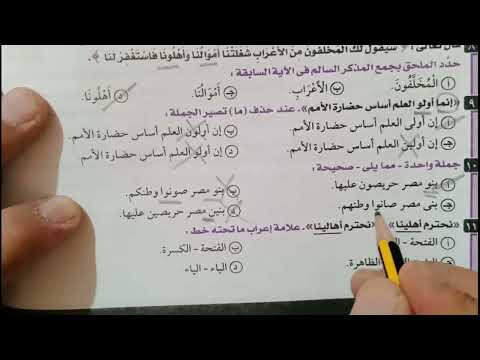 ٨ قال تعالى : ﴿ سيقول لك المخلفون من الأعراب شغلتنا أموالنا وأهلونا فاستغفر لنا ﴾ .
حدد الملحق بجمع المذكر السالم فى الآية السابقة :
أ المخلفون . ب الأعراب . ج أموالنا . د أهلونا .
٩ «إنما أولو العلم أساس حضارة الأمم» . عند حذف (ما) تصير الجملة :
أ إن أولى العلم أساس حضارة الأمم . ب إن أولون العلم أساس حضارة الأمم .
ج إن أولين العلم أساس حضارة الأمم . د إن أولو العلم أساس حضارة الأمم .
١٠ جملة واحدة - مما يلى - صحيحة :
أ بنو مصر حريصون عليها . ب بنو مصر صونوا وطنكم .
ج بنى مصر صانوا وطنهم . د بنين مصر حريصين عليها .
١١ «نحترم أهلينا» «نحترم أهالينا» . علامة إعراب ما تحته خط :
أ الفتحة - الياء ب الفتحة - الكسرة .
ج الياء الظاهرة . د الياء - الياء